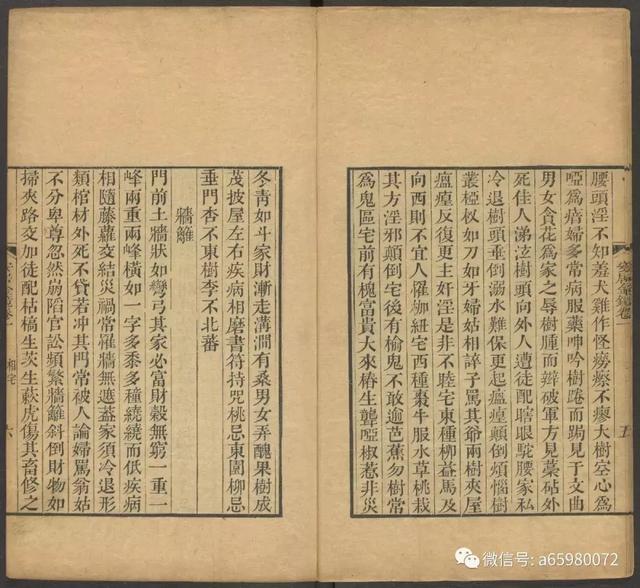 腰頭淫不知羞犬雞作怪癆瘵不瘳大樹空心爲
啞爲瘖婦多常病服藥呻吟樹踡而跼見于文曲
男女貪花爲家之辱樹腫而辦破軍方見蒙砧外
死佳人涕泣樹頭向外人遭徒配瞎眼駝腰家私
冷退樹頭垂倒溺水難保更起瘟𤸷顛倒煩惱樹
叢椏杈如刀如牙婦姑相誶子罵其爺兩樹夾屋
瘟𤸷反復更主奸淫是非不睦宅東種柳益馬及
向西則不宜人罹枷紐宅西種棗牛服水草桃栽
其方淫邪顛倒宅後有榆鬼不敢逾芭蕉勿樹常
爲鬼區宅前有槐富貴大來椿生聾啞椒惹非災
五
冬青如斗家財漸走溝澗有桑男女弄醜果樹成
茂披屋左右疾病相磨書符持咒桃忌東園柳忌
垂門杏不東樹李不北蕃
牆籬
門前土牆狀如彎弓其家必富財穀無窮一重一
峰兩重兩峰橫如一字多黍多種繞繞而低疾病
相隨藤蘿交結災禍常羅牆無遮葢家須冷退形
類棺材外死不貸若冲其門常被人論婦罵翁姑
不分卑尊忽然崩陷官訟頻繁牆籬斜倒財物如
掃夾路交加徒配枯槁生茨生蔌虎傷其畜修之
相宅
六
微信号: a65980072